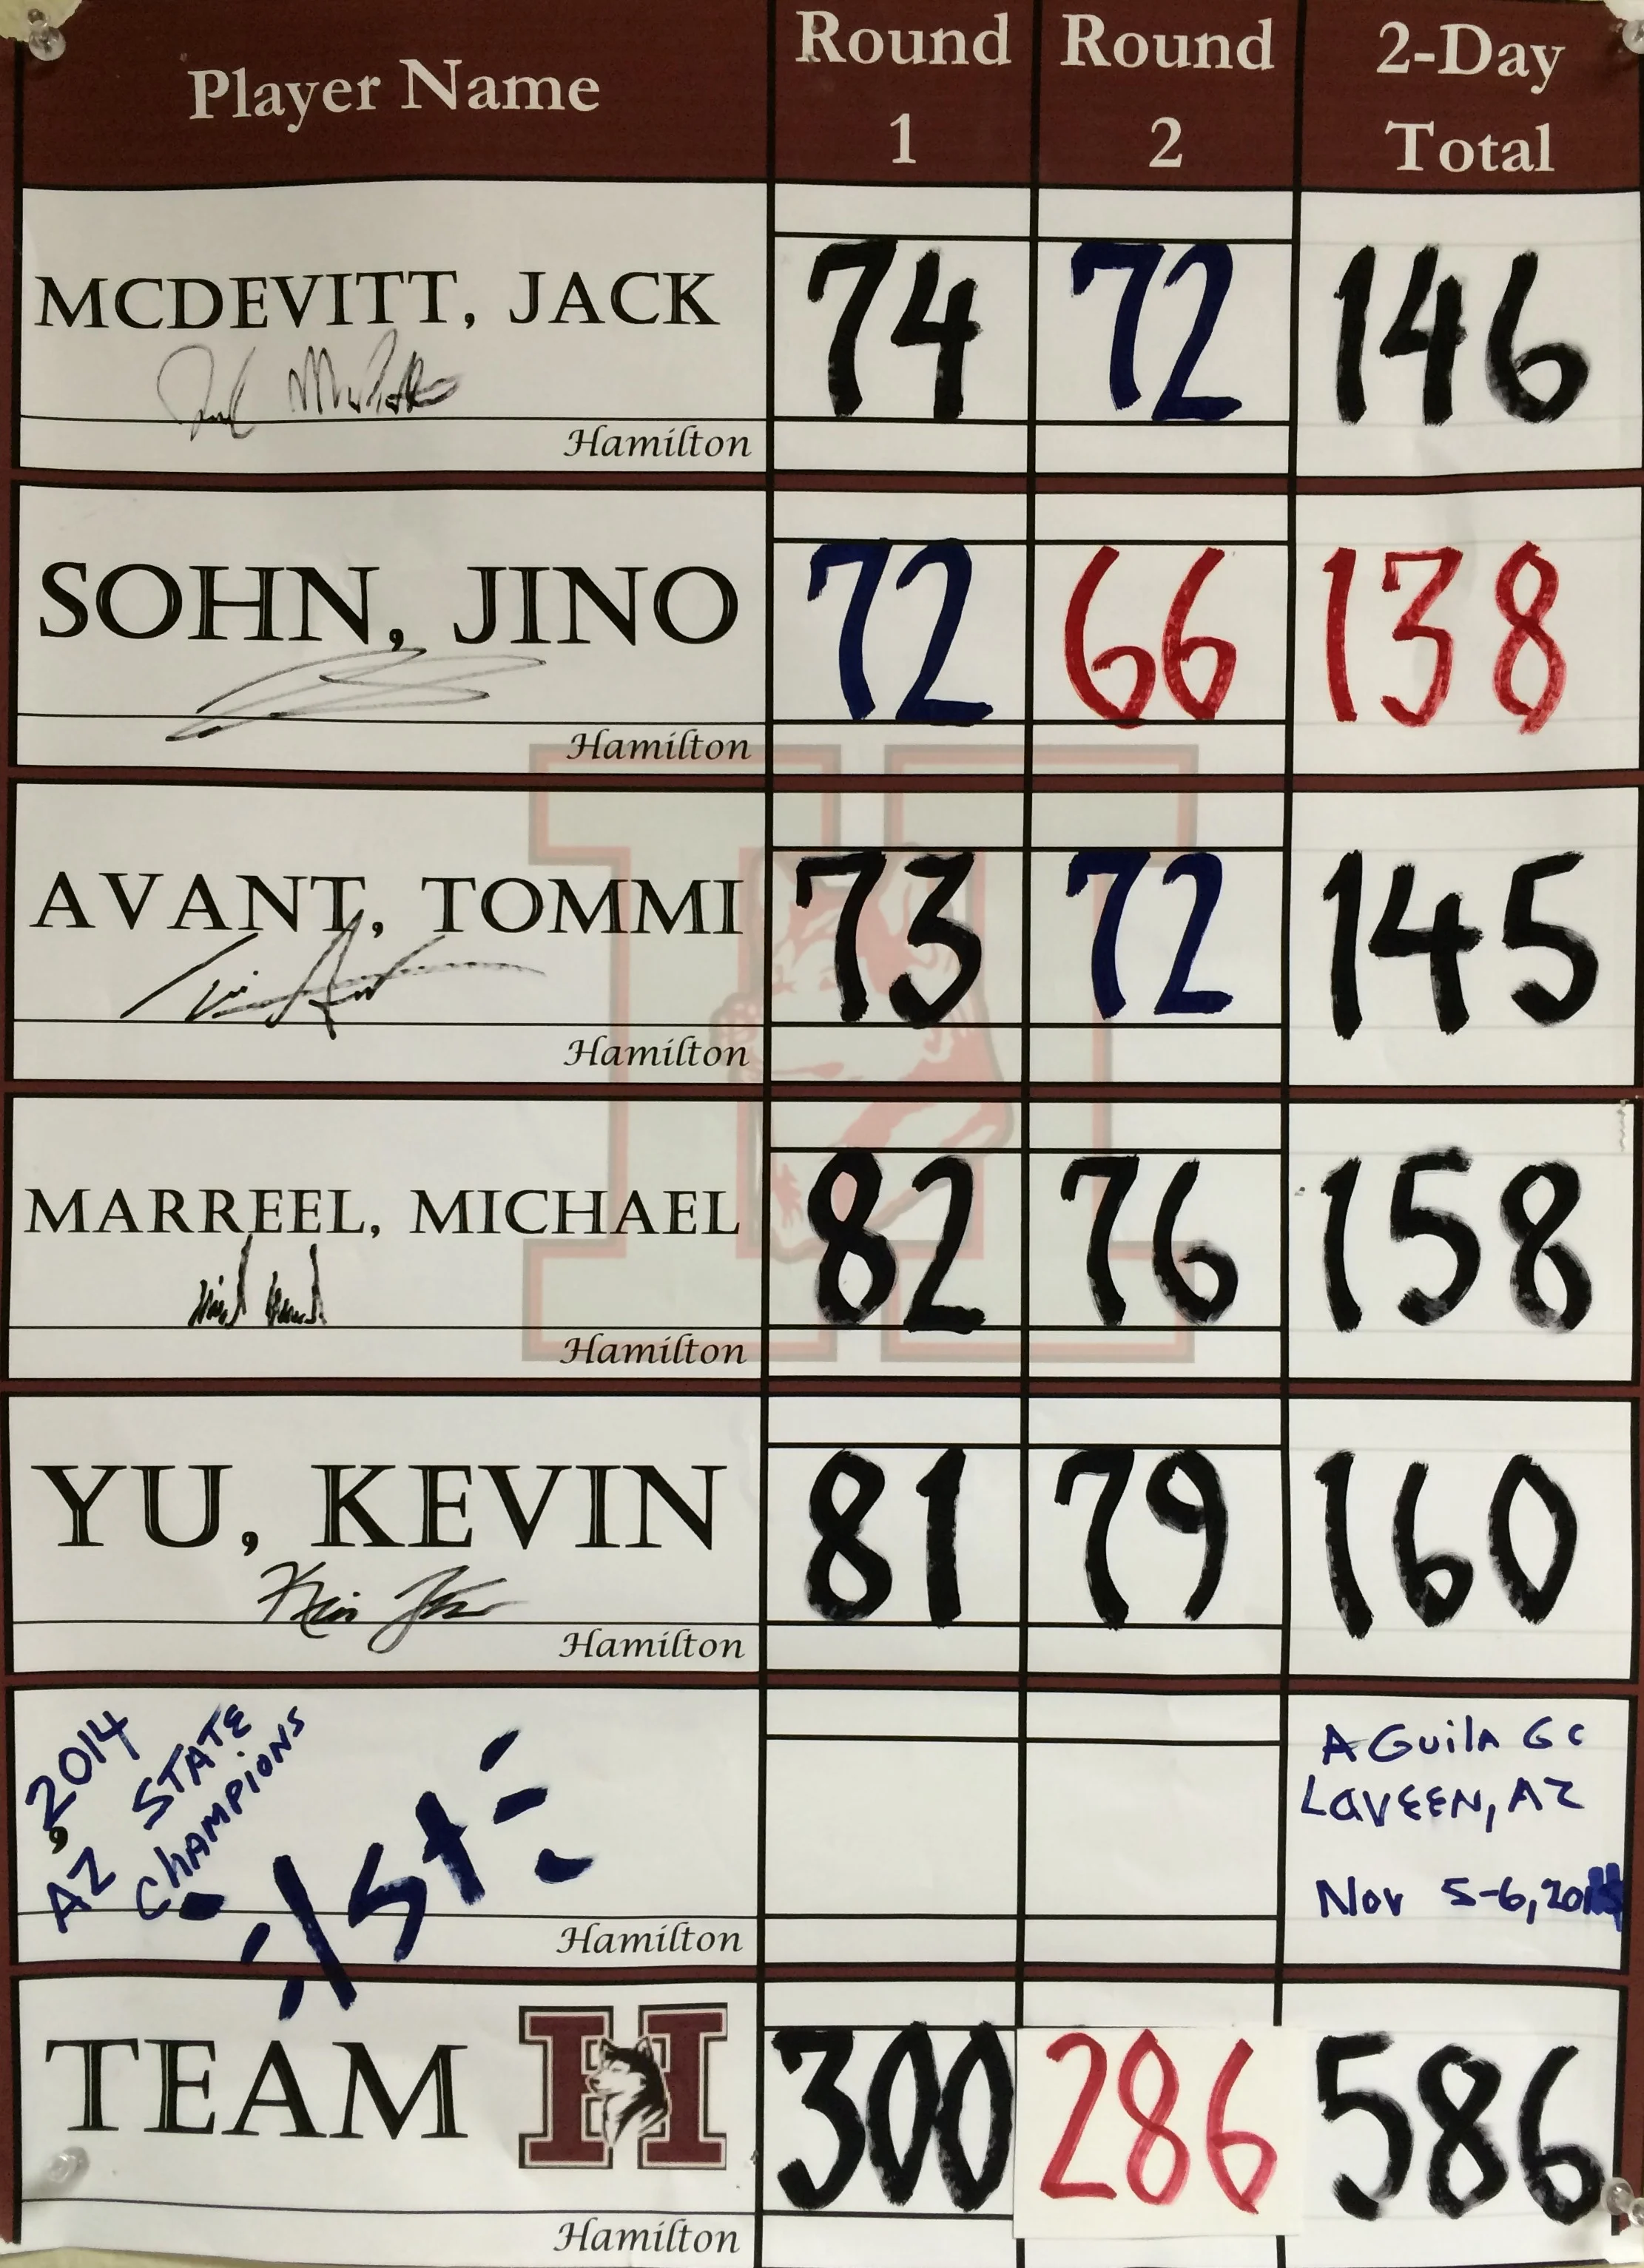 Player Name
Round 1
Round 2
2-Day Total
MCDEVITT, JACK
74 72 146
Hamilton
SOHN, JINO
72 66 138
Hamilton
AVANT, TOMMI
73 72 145
Hamilton
MARREEL, MICHAEL
82 76 158
Hamilton
YU, KEVIN
81 79 160
Hamilton
2014
AZ STATE
CHAMPIONS
1st
AGuila GC
LAVEEN, AZ
Nov 5-6, 2014
Hamilton
TEAM H
300 286 586
Hamilton